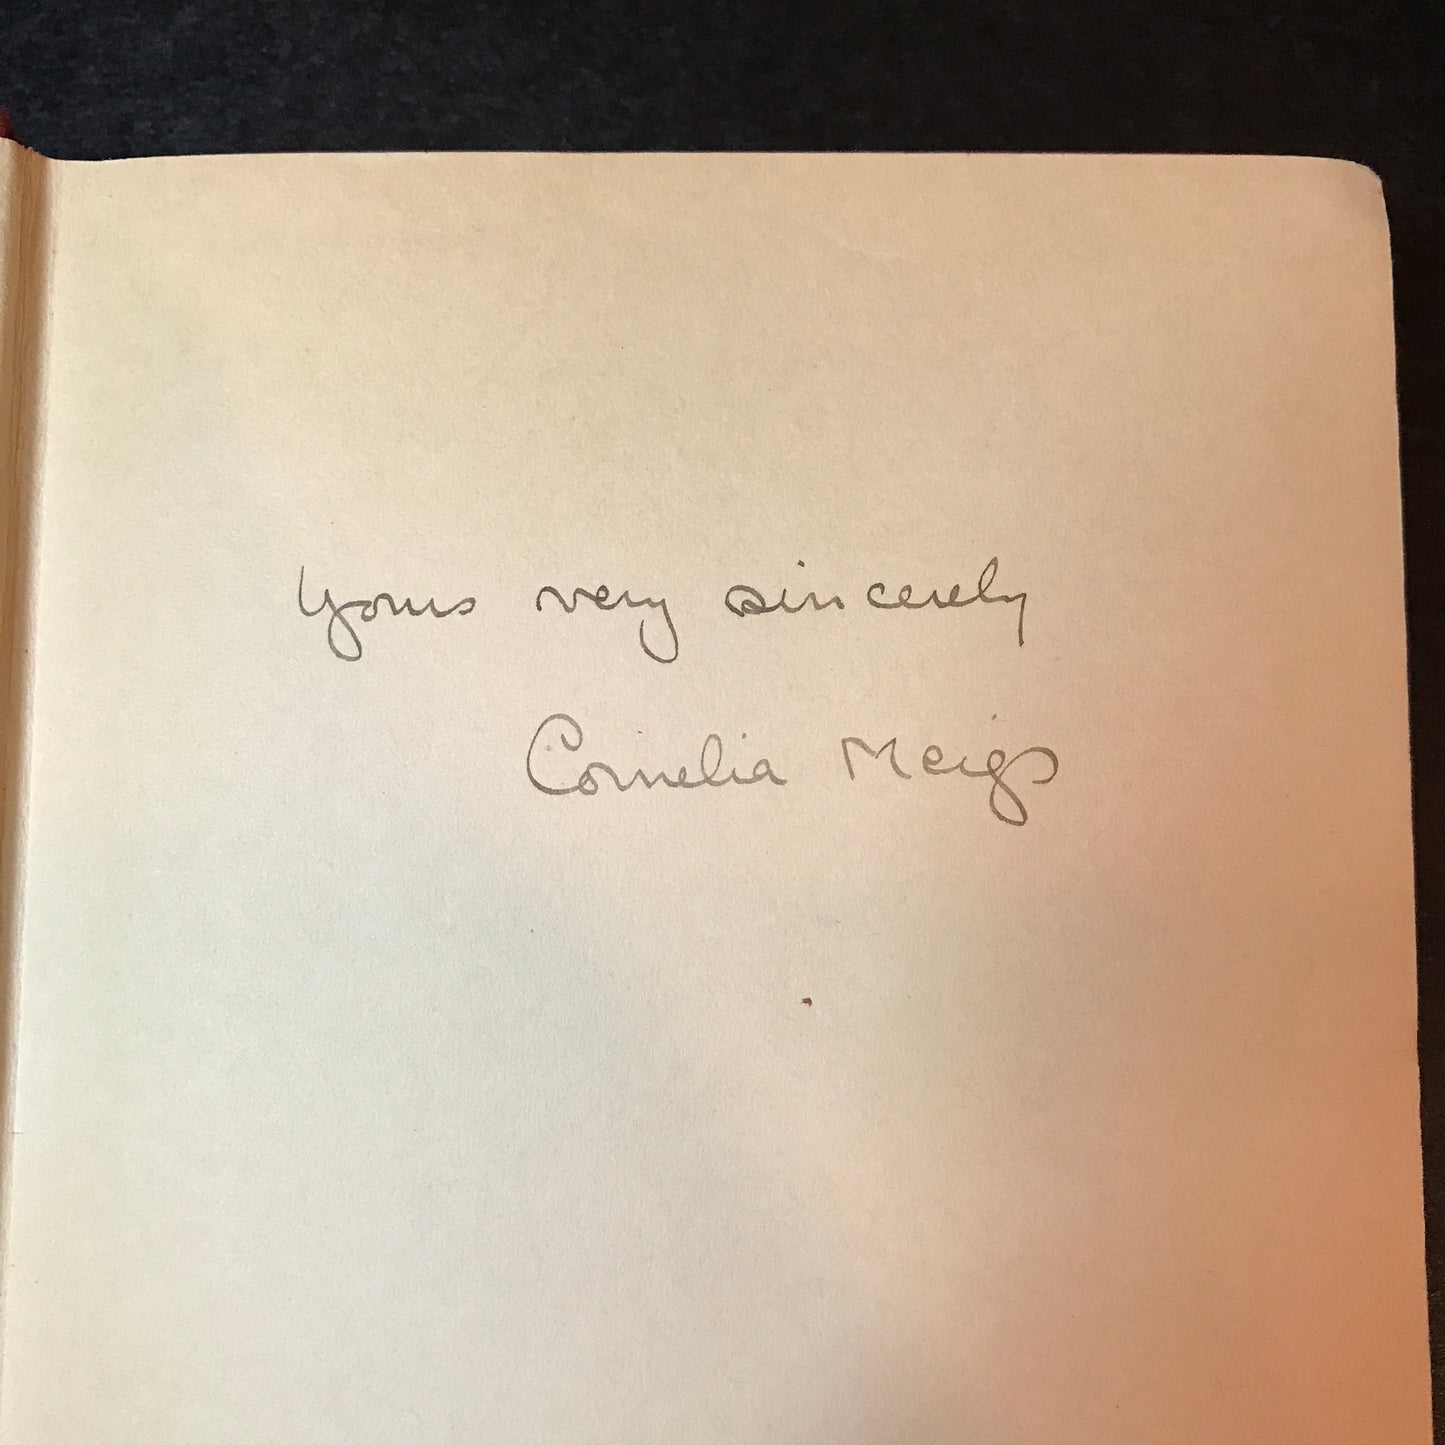 Yours very sincerely
Cornelia Meigs